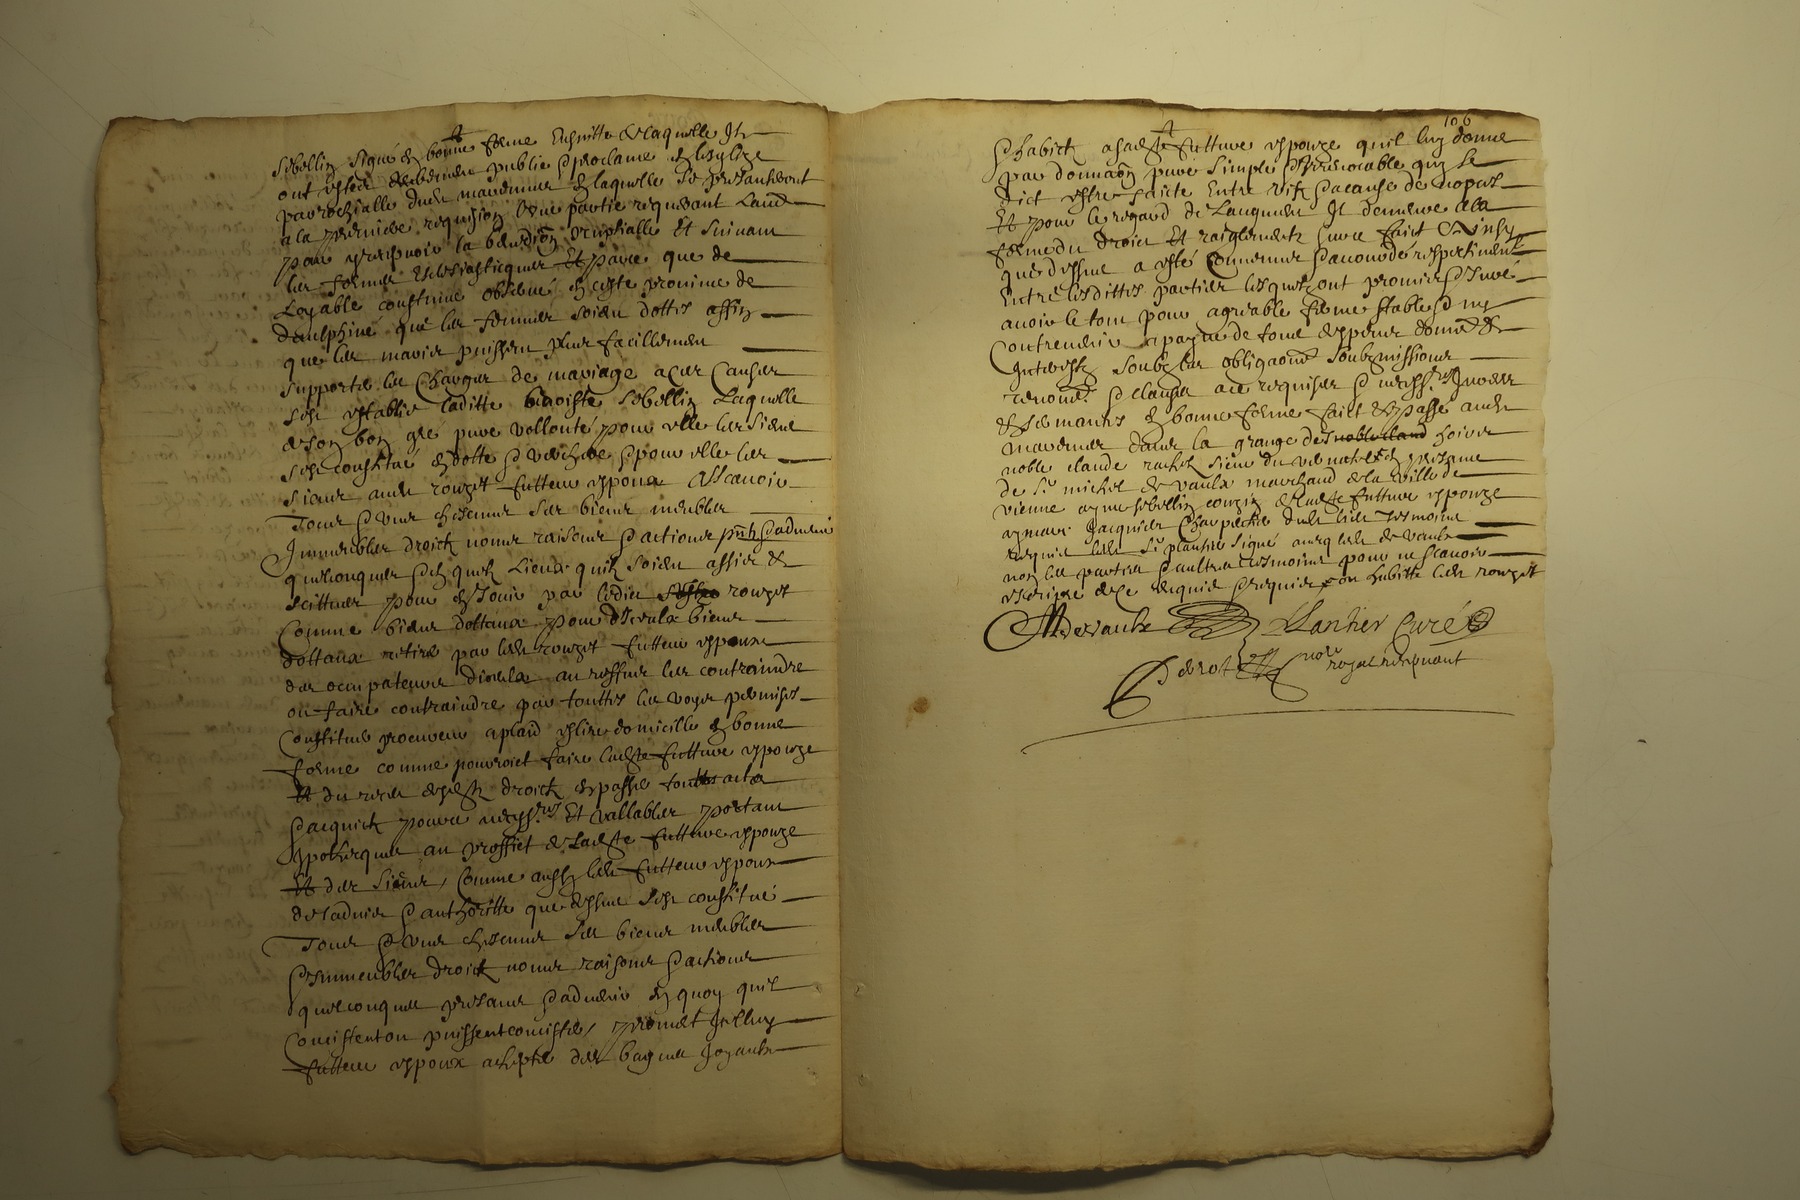 Sebellin signé en bonne forme Ensuitte de laquelle Ilz
ont estés deubement publié et proclamé en lesglize
parrochialle dudit marennes en laquelle se presanteront
a la premiere requision lune partie requerant lautre
pour y recepvoir la benedion nuptialle Et suivant
les formes Eclesiasticques Et parce que de
Loyable coustume observé en ceste province de
daulphiné que les femmes soient dottés affin
que les maris puissent plus facillement
supporter les charges de mariage a ces causes
sest establie laditte benoiste Sebellin Laquelle
de son bon gré pure vollonté pour elle les siens
sest constitué en dotte et verchere et pour elle les
siens audit rouget futteur espoux Assavoir
Tous et uns chescuns ses biens meubles
Immeubles droictz noms raisons et actions pntz et advenir
quelconques et en quelz Lieux quilz soient assis et
scittues pour en Jouir par ledict rouget
Comme biens dottaux pour diceulx biens
dottaux retirer par ledit rouget futteur espoux
des occupateurs diceulx au reffus les contraindre
ou faire contraindre par touttes les voyes permises
Constituer procureur a plaid eslire domicille en bonne
forme comme pourroict faire ladte futture espouze
Et du receu desdtz droictz en passer touttes actes
et acquictz pour necessres Et vallables portant
ypotheques au proffict de ladte futture espouze
Et des siens, Comme aussy ledit futteur espoux
de ladvis et authoritté que dessus sest constitué
Tous et uns chescuns ses biens meubles
et Immeubles droictz noms raisons et actions
quelconques presants et advenir en quoy quil
Concistent ou puissent concister, promet Icelluy
futteur espoux achepter des bagues Joyaulx
106
et habictz a sadte futture espouze quil luy donne
par donnaon pure simple et Irrevocable quy se
dict estre faicte Entre vifz et a cause de nopces
Et pour le regard de Laugment Il demeure a la
forme du droict Et raiglementz sur ce faict Et Ainsy
que dessus a esté Convenu et accordé respectivemt
Entre lesdittes parties lesquelz ont promis et Juré
avoir le tout pour agreable ferme stable et ny
contrevenir a payne de tous despens domes et
Interestz soubz les obligaons soubzmissions
renonons et clauses ad ce requises et necessres Juredes
et demandes en bonne forme faict et passé audit
marennes dans la grange des hoirs
noble claude rachez sieur du vernatel En presance
de Sr michel de vaulx marchand de la ville de
vienne ayme sebellin couzin de ladte futture espouze
aymar Jacquier Charpentier dudt lieu tesmoins
requis ledit Sr plantier signé avecq ledit de vaulx
non les parties et aultres tesmoins pour ne scavoir
escripre de ce enquis et requis ou habitte ledit rouget
M Devaulx Plantier Curé
Perrot nore royal recepvant